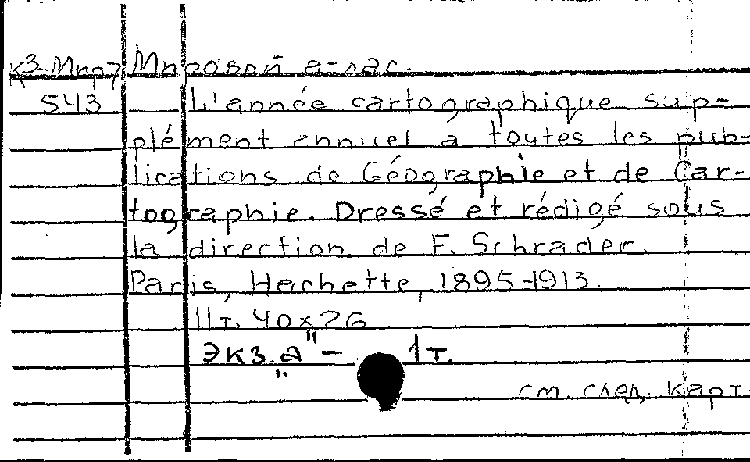 К3-Мир7 Мировой атлас.
543 L'année cartographique sup-
plément annuel a toutes les pub-
lications de Géographie et de Car-
tographie. Dressé et rédigé sous
la direction de F. Schrader.
Paris, Hachette, 1895-1913.
11т. 40x26
Экз. „а" – 1т.
см. след. карт.